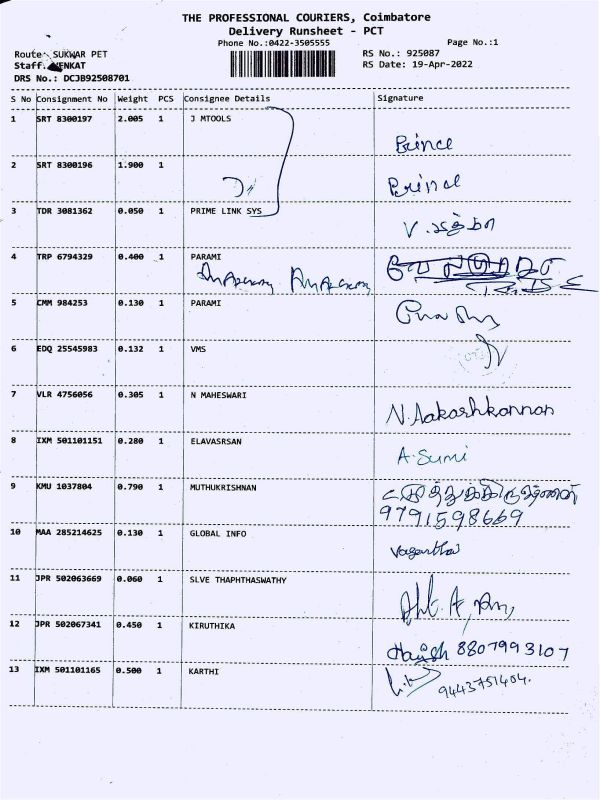 THE PROFESSIONAL COURIERS, Coimbatore
Delivery Runsheet - PCT
Phone No.:0422-3505555 Page No.:1
Route: SUKWAR PET RS No.: 925087
Staff. VENKAT RS Date: 19-Apr-2022
DRS No.: DCJB92508701
S No Consignment No Weight PCS Consignee Details Signature
1 SRT 8300197 2.005 1 J MTOOLS
Prince
2 SRT 8300196 1.900 1
3 TDR 3081362 0.050 1 PRIME LINK SYS
4 TRP 6794329 0.400 1 PARAMI
5 CMM 984253 0.130 1 PARAMI
6 EDQ 25545983 0.132 1 VMS
7 VLR 4756056 0.305 1 N MAHESWARI
N. Aakashkannan
8 IXM 501101151 0.280 1 ELAVASRSAN
A. Sumi
9 KMU 1037804 0.790 1 MUTHUKRISHNAN
9791598669
10 MAA 285214625 0.130 1 GLOBAL INFO
Vasantha
11 JPR 502063669 0.060 1 SLVE THAPHTHASWATHY
12 JPR 502067341 0.450 1 KIRUTHIKA
8807993107
13 IXM 501101165 0.500 1 KARTHI
9443751404.